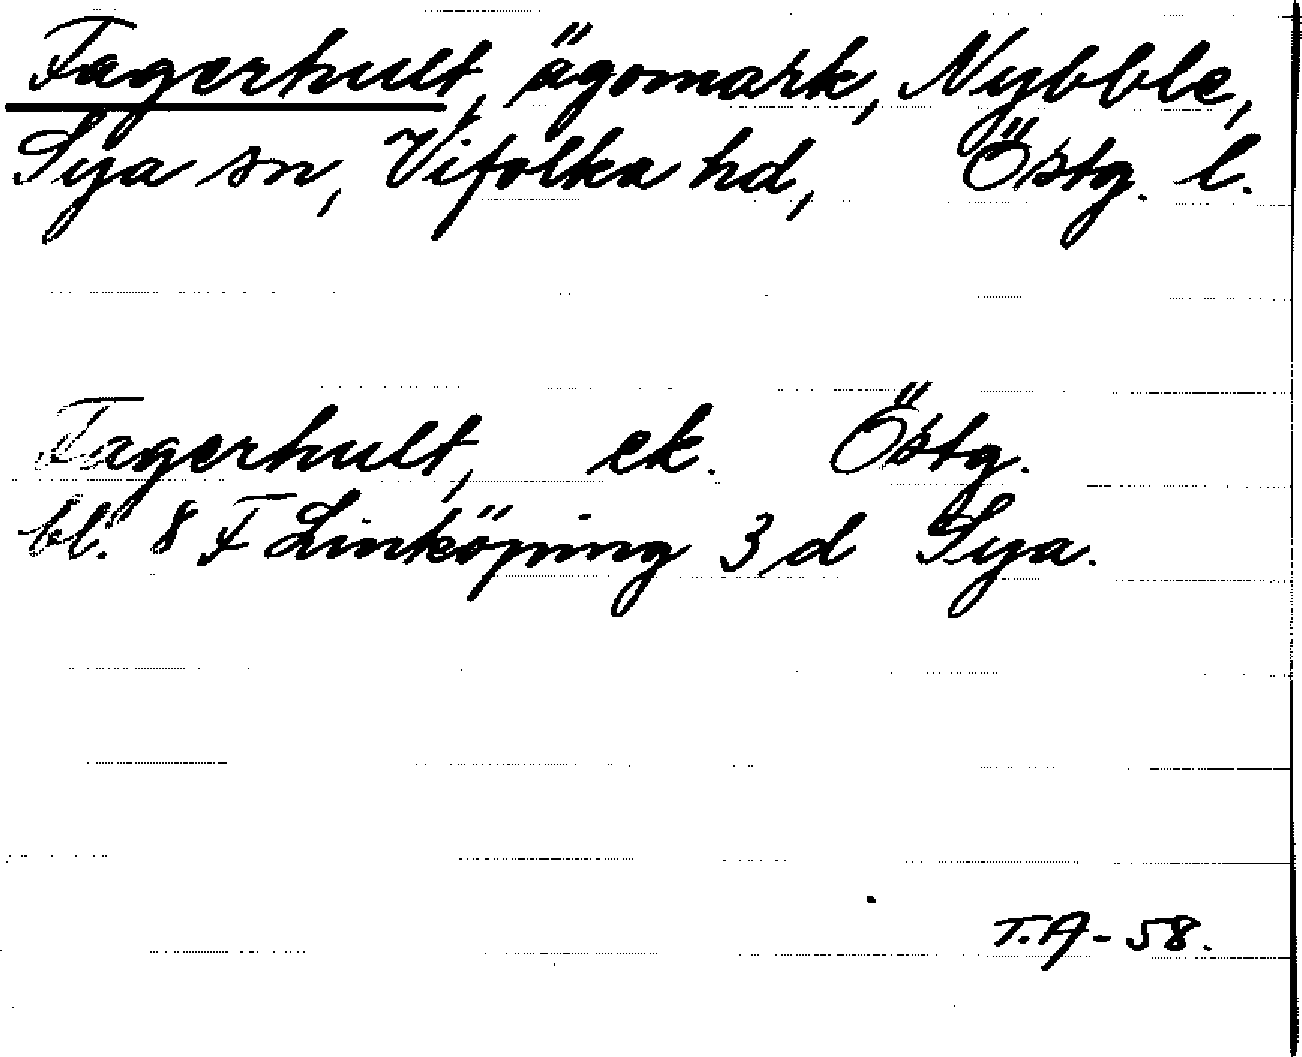 Fagerhult, ägomark, Nybble,
Sya sn, Vifolka hd, Östg. l.
Fagerhult, ek. Östg.
bl. 8 F Linköping 3 d Sya.
T.A - 58.